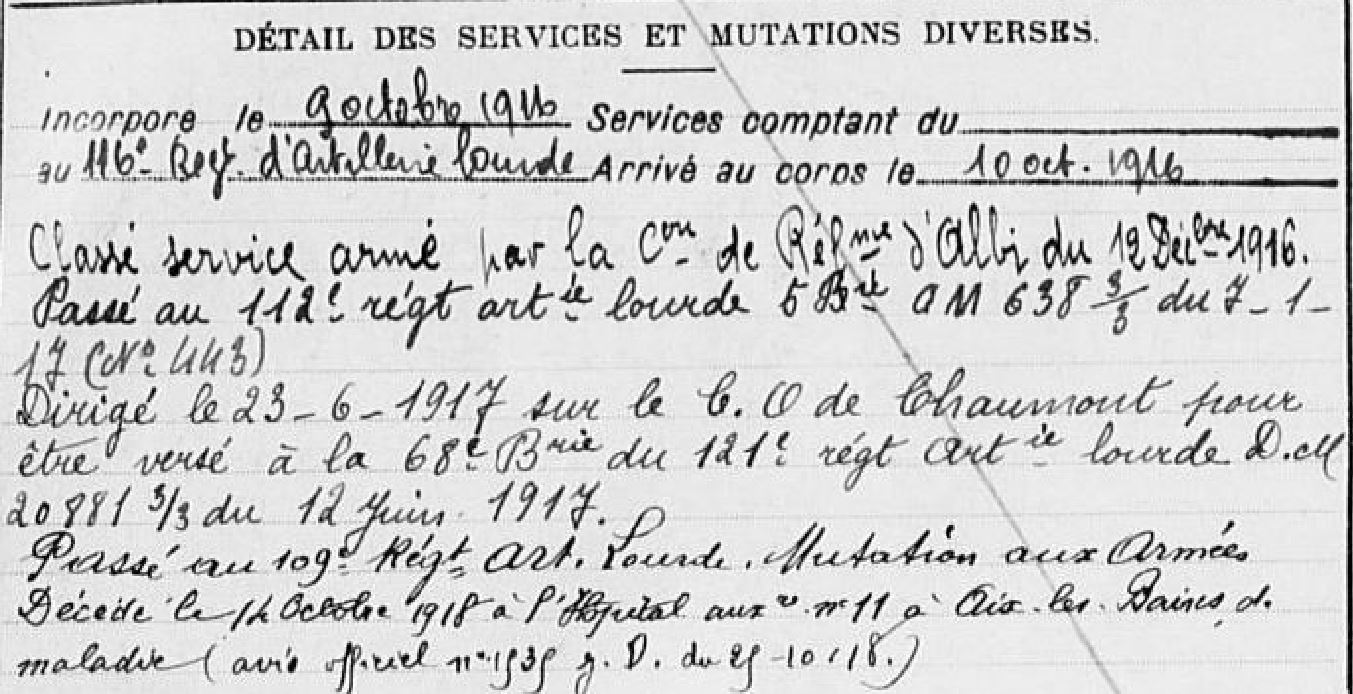 DÉTAIL DES SERVICES ET MUTATIONS DIVERSES.
Incorporé le 9 octobre 1916 Services comptant du
au 116e Reg. d'Artillerie lourde Arrivé au corps le 10 oct. 1916
Classé service armé par la Con de Réfme d'Albi du 12 Décbre 1916.
Passé au 112e régt artie lourde 5 Brie OM 638 3/3 du 7-1-
17 (No 443)
Dirigé le 23-6-1917 sur le C.O de Chaumont pour
être versé à la 68e Brie du 121e régt Artie lourde D.M
20881 3/3 du 12 Juin 1917.
Passé au 109e Régt Art. Lourde. Mutation aux Armées
Décédé le 14 Octobre 1918 à l'Hôpital aux re no 11 à Aix-les-Bains, de
maladie (avis officiel no 1535 g. D. du 25-10-18.)